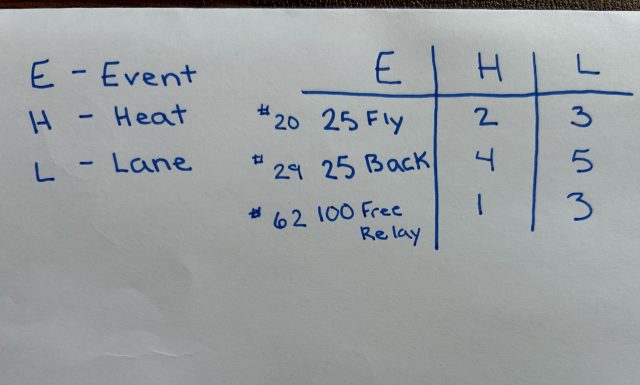 E - Event
H - Heat
L - Lane
E H L
#20 25 Fly 2 3
#29 25 Back 4 5
#62 100 Free Relay 1 3